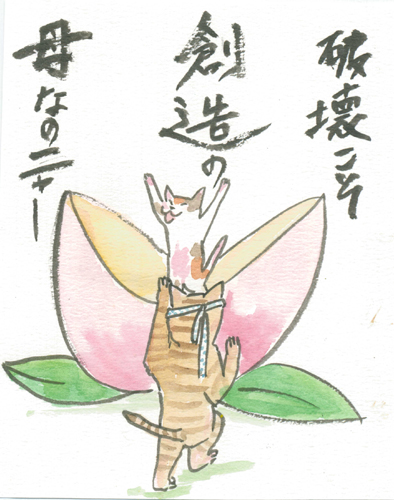 破壊こそ
創造の
母なのニャー